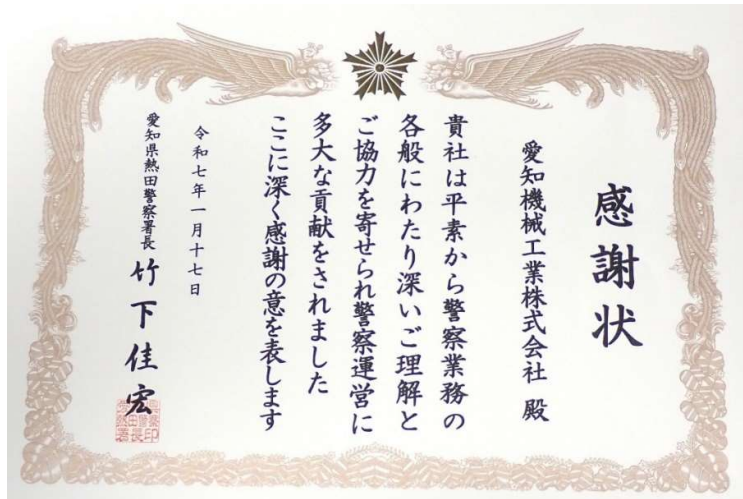 感謝状
愛知機械工業株式会社 殿
貴社は平素から警察業務の
各般にわたり深いご理解と
ご協力を寄せられ警察運営に
多大な貢献をされました
ここに深く感謝の意を表します
令和七年一月十七日
愛知県熱田警察署長 竹下佳宏